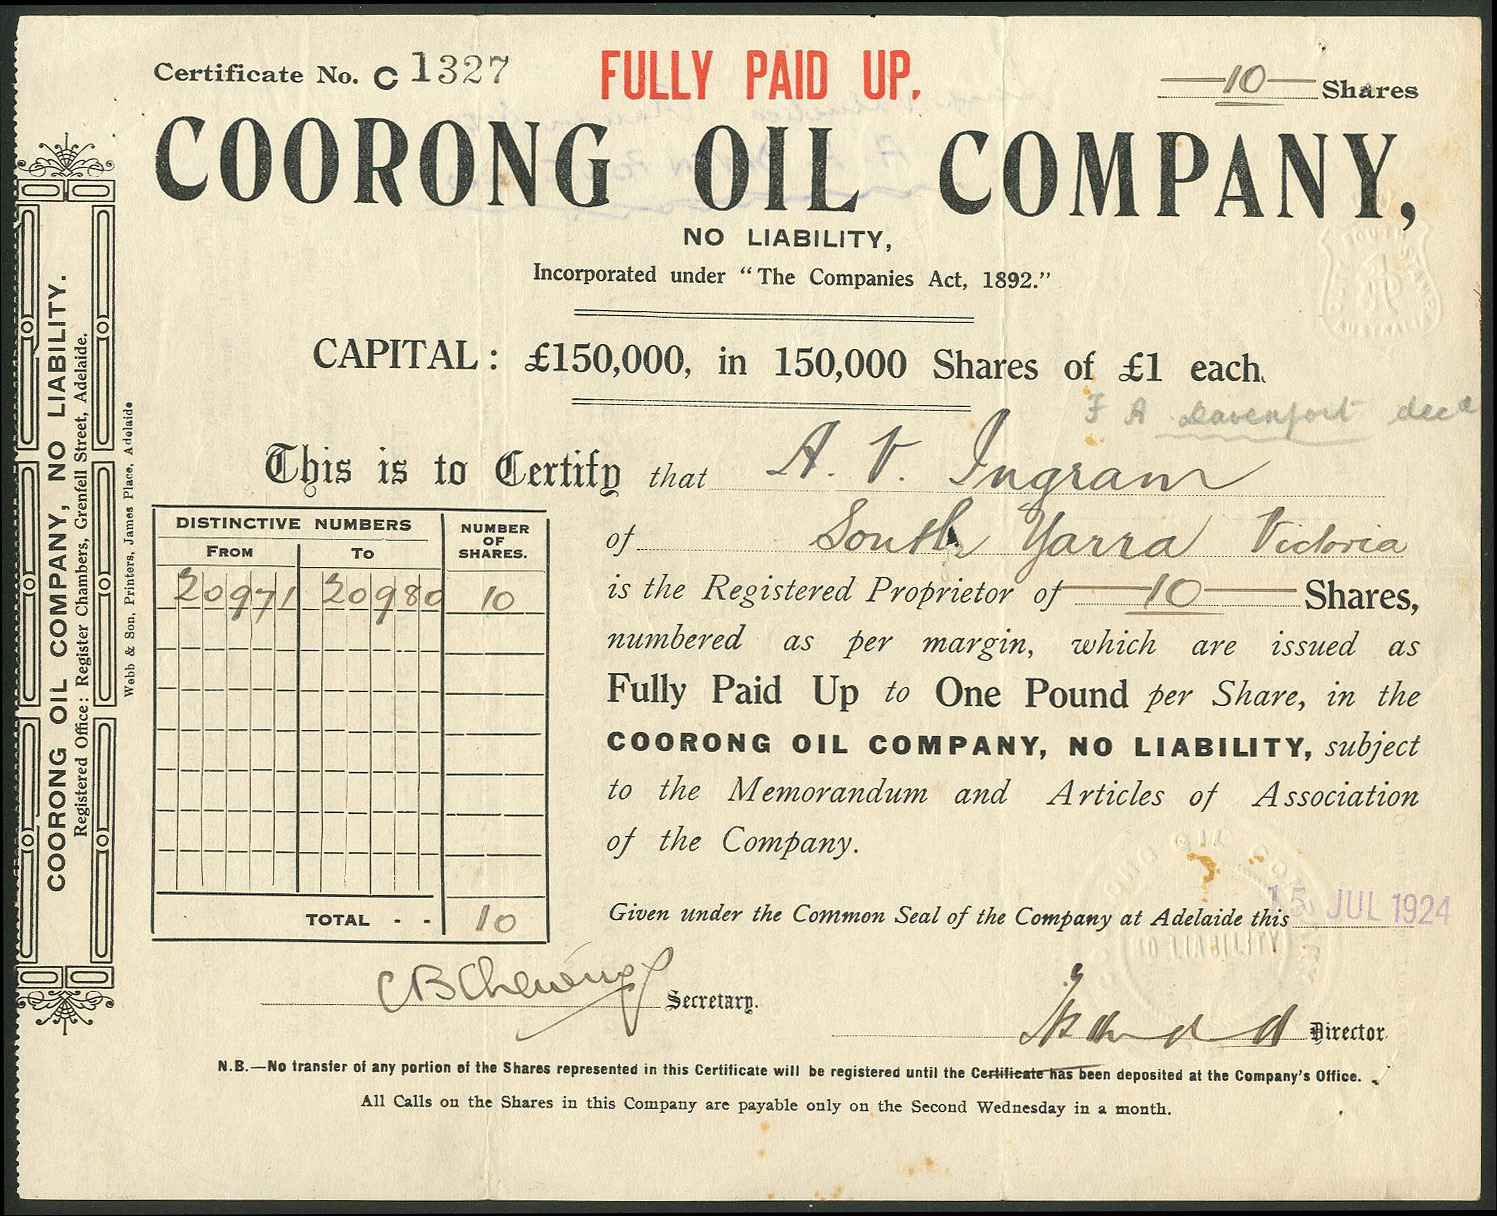 Certificate No. C 1327
FULLY PAID UP.
10 Shares
COORONG OIL COMPANY,
NO LIABILITY,
Incorporated under "The Companies Act, 1892."
CAPITAL: £150,000, in 150,000 Shares of £1 each.
F A Davenport decd
This is to Certify that A. V. Ingram
of South Yarra Victoria
is the Registered Proprietor of 10 Shares,
numbered as per margin, which are issued as
Fully Paid Up to One Pound per Share, in the
COORONG OIL COMPANY, NO LIABILITY, subject
to the Memorandum and Articles of Association
of the Company.
Given under the Common Seal of the Company at Adelaide this 15 JUL 1924
DISTINCTIVE NUMBERS
NUMBER OF SHARES.
FROM TO
20971 20980 10
TOTAL - - 10
Secretary.
Director.
N.B.—No transfer of any portion of the Shares represented in this Certificate will be registered until the Certificate has been deposited at the Company's Office.
All Calls on the Shares in this Company are payable only on the Second Wednesday in a month.
COORONG OIL COMPANY, NO LIABILITY.
Registered Office: Register Chambers, Grenfell Street, Adelaide.
Webb & Son, Printers, James Place, Adelaide
SOUTH AUSTRALIA
NO LIABILITY